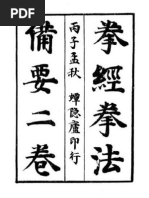 拳經拳法
丙子孟秋 蟫隱廬印行
備要二卷